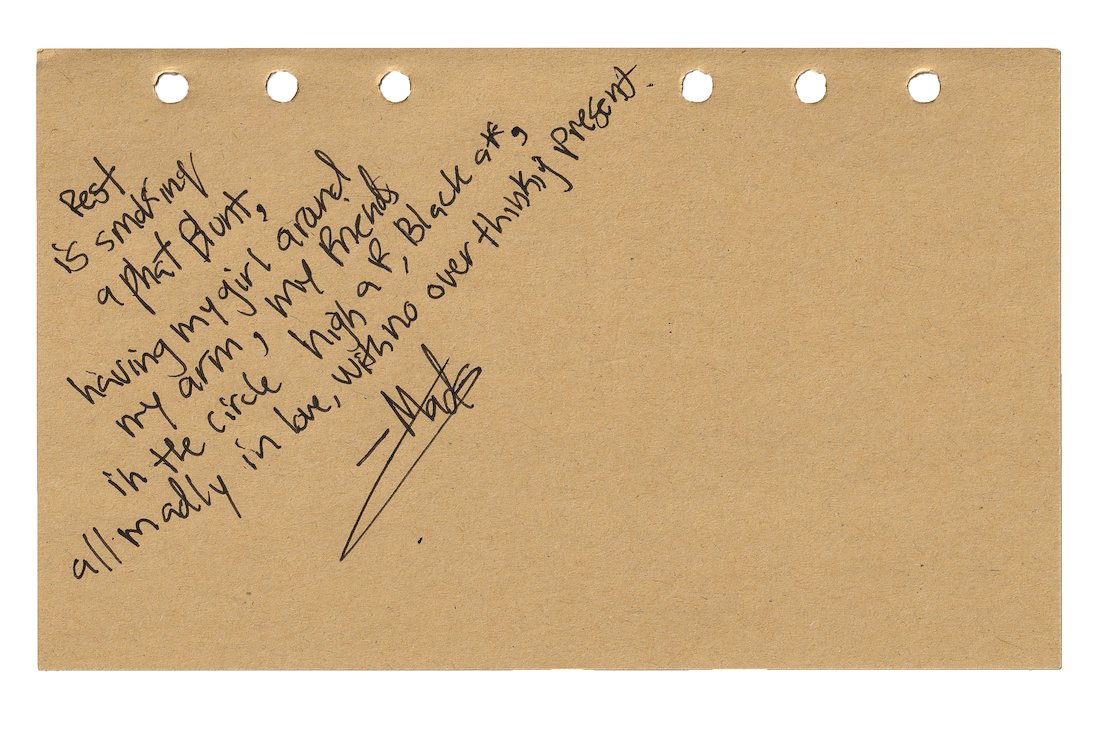 Rest
is smoking
a phat Blunt,
having my girl around
my arm, my friends
in the circle high af, Black af,
all madly in love, with no over thinking present.